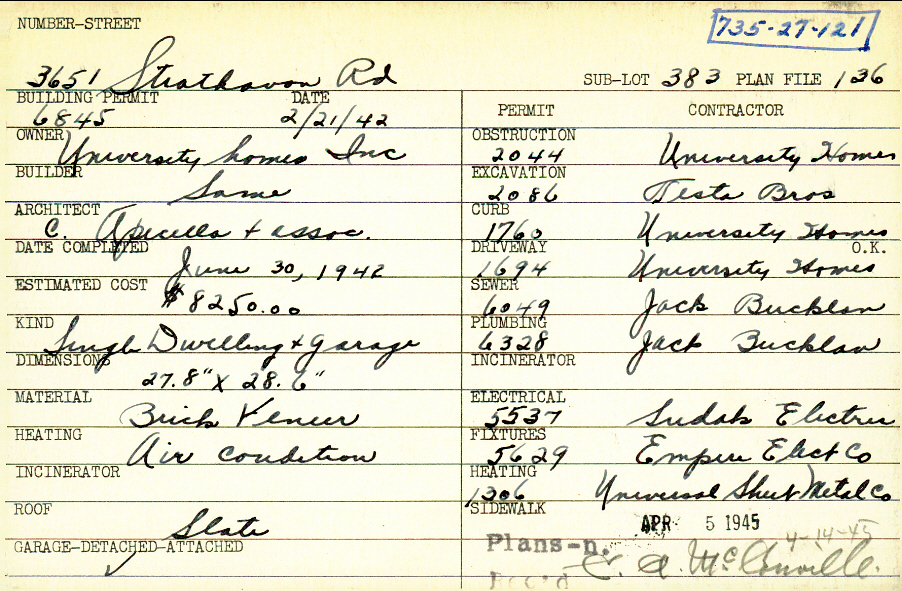 NUMBER-STREET
735-27-121
3651 Strathavon Rd
SUB-LOT 383 PLAN FILE 136
BUILDING PERMIT DATE
6845 2/21/42
OWNER
University homes Inc
BUILDER
Same
ARCHITECT
C. Apicella + assoc.
DATE COMPLETED
June 30, 1942
ESTIMATED COST
$8250.00
KIND
Single Dwelling + garage
DIMENSIONS
27.8" X 28.6"
MATERIAL
Brick Veneer
HEATING
Air condition
INCINERATOR
ROOF
Slate
GARAGE-DETACHED-ATTACHED
✓
PERMIT CONTRACTOR
OBSTRUCTION
2044 University Homes
EXCAVATION
2086 Testa Bros
CURB
1760 University Homes
DRIVEWAY O.K.
1694 University Homes
SEWER
6049 Jack Bucklan
PLUMBING
6328 Jack Bucklan
INCINERATOR
ELECTRICAL
5537 Sudak Electric
FIXTURES
5629 Empire Elect Co
HEATING
1306 Universal Sheet Metal Co
SIDEWALK
APR 5 1945
Plans-n.
4-14-45
E. A. McConville.